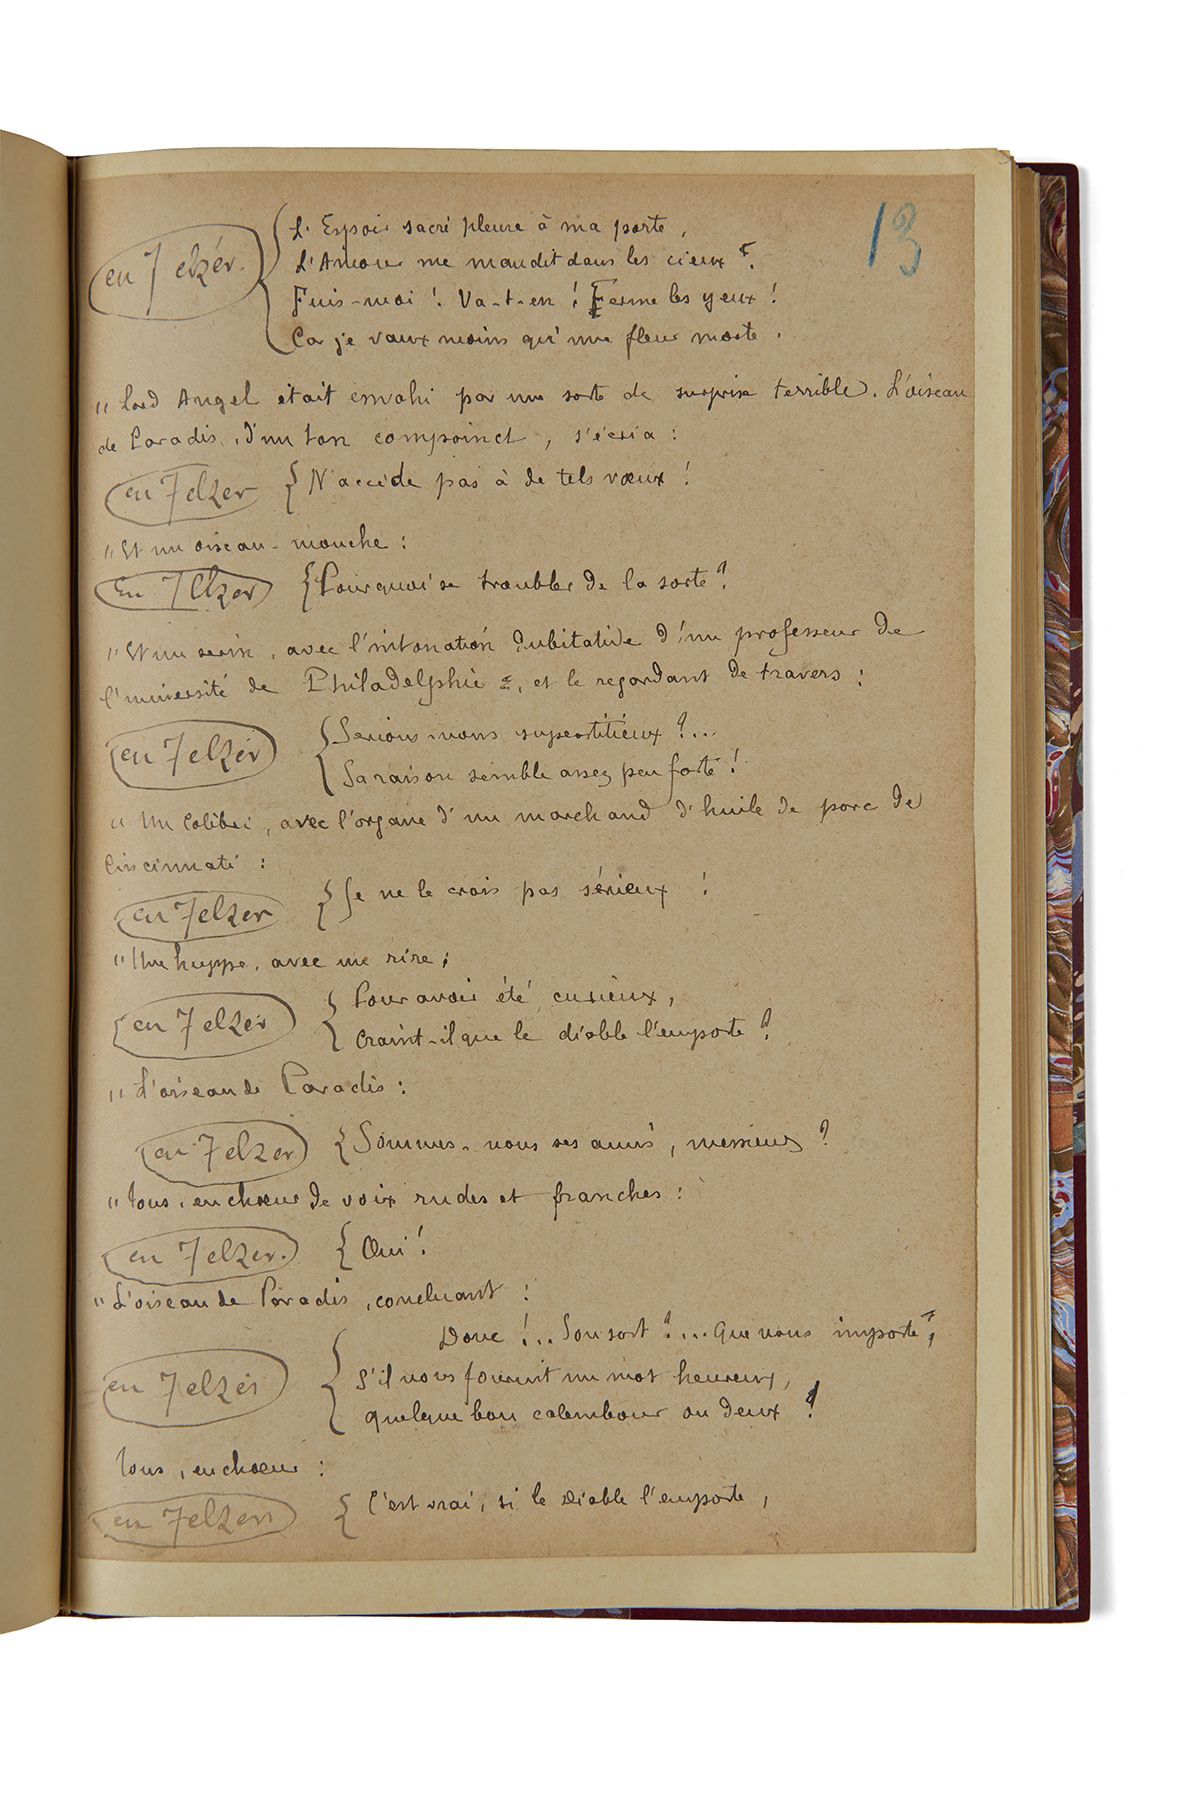 13
en 7 elzér. L'Espoir sacré pleure à ma porte,
L'Amour me maudit dans les cieux :
Fuis-moi ! Va-t-en ! Ferme les yeux !
Car je vaux moins qu'une fleur morte.
" Lord Angel était envahi par une sorte de surprise terrible. L'oiseau
de Paradis, d'un ton compoinct, s'écria :
en 7 elzer N'accède pas à de tels vœux !
" Et un oiseau-mouche :
En 7 elzer Pourquoi se troubler de la sorte ?
" Et un serin, avec l'intonation dubitative d'un professeur de
l'université de Philadelphie, et le regardant de travers :
en 7 elzér Serions-nous superstitieux ?...
Sa raison semble assez peu forte !
" Un Colibri, avec l'organe d'un marchand d'huile de porc de
Cincinnati :
en 7 elzer Je ne le crois pas sérieux !
" Une huppe, avec une rire ;
en 7 elzér Pour avoir été curieux,
Craint-il que le diable l'emporte ?
" L'oiseau de Paradis :
en 7 elzer Sommes-nous ses amis, messieurs ?
" Tous, en chœur de voix rudes et franches :
en 7 elzer. Oui !
" L'oiseau de Paradis, concluant :
Donc !... Son sort ?... Que nous importe,
en 7 elzér S'il nous fournit un mot heureux,
quelque bon calembour ou deux !
Tous, en chœur :
en 7 elzer C'est vrai, si le Diable l'emporte,